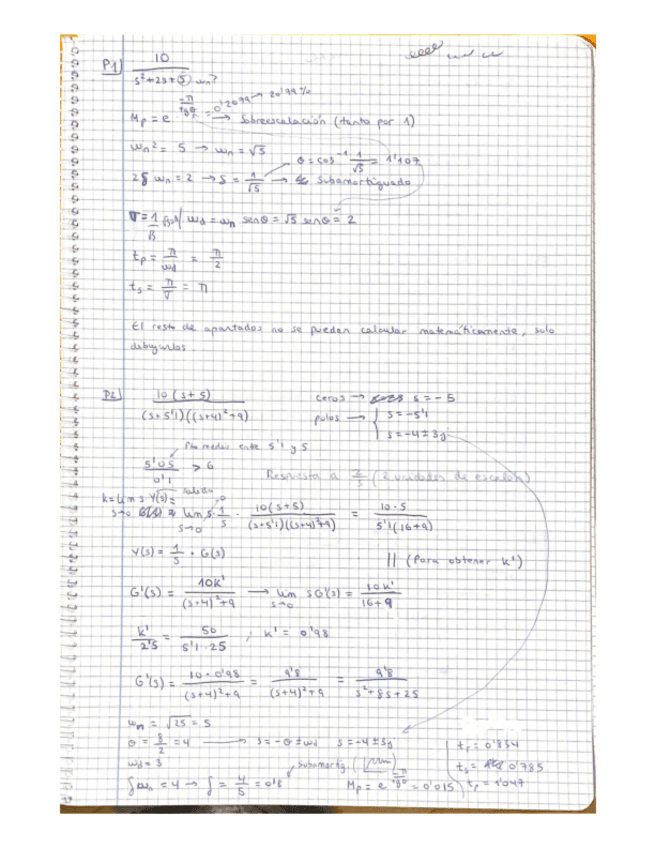 P1) 10 / (s²+2s+5) ωn?
Mp = e^(-π/tgθ) = 0'2079 → 20'79 %
→ Sobreescalación (tanto por 1)
ωn² = 5 → ωn = √5
θ = cos⁻¹ 1/√5 = 1'107
2δ ωn = 2 → δ = 1/√5 → Subamortiguado
ωd = ωn senθ = √5 senθ = 2
tp = π/ωd = π/2
ts = π/σ = π
El resto de apartados no se pueden calcular matemáticamente, solo
dibujarlos.
P2) 10(s+5) / ((s+5'1)((s+4)²+9))
ceros → s = -5
polos → { s = -5'1
s = -4 ± 3j
Pto medio entre 5'1 y 5
5'05 / 0'1 > 6
Respuesta a 2/s (2 unidades de escalón)
salida
k = lim s·Y(s) =
s→0
lim s · 1/s · 10(s+5) / ((s+5'1)((s+4)²+9)) = 10·5 / 5'1(16+9)
s→0
Y(s) = 1/s · G(s)
|| (Para obtener k')
G'(s) = 10k' / ((s+4)²+9) → lim sG'(s) = 10k' / (16+9)
s→0
k'/2'5 = 50 / (5'1·25) ; k' = 0'98
G'(s) = 10·0'98 / ((s+4)²+9) = 9'8 / ((s+4)²+9) = 9'8 / (s²+8s+25)
ωn = √25 = 5
σ = 8/2 = 4 → s = -σ ± ωd s = -4 ± 3j
ωd = 3
δωn = 4 → δ = 4/5 = 0'8
subamortig.
Mp = e^(-π/tgθ) = 0'015
tr = 0'834
ts = 0'785
tp = 1'047